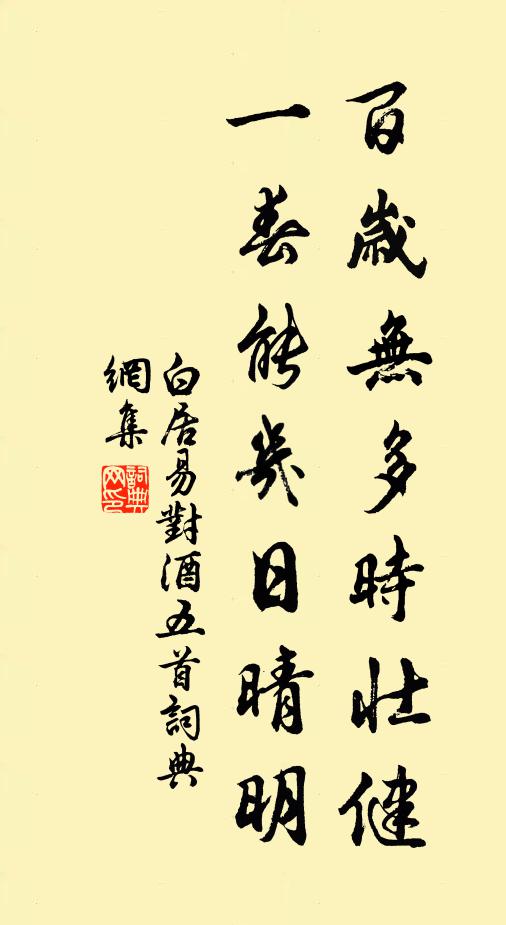 百歲無多時壯健
一春能幾日晴明
白居易對酒五首詞典
網集
詞典網印